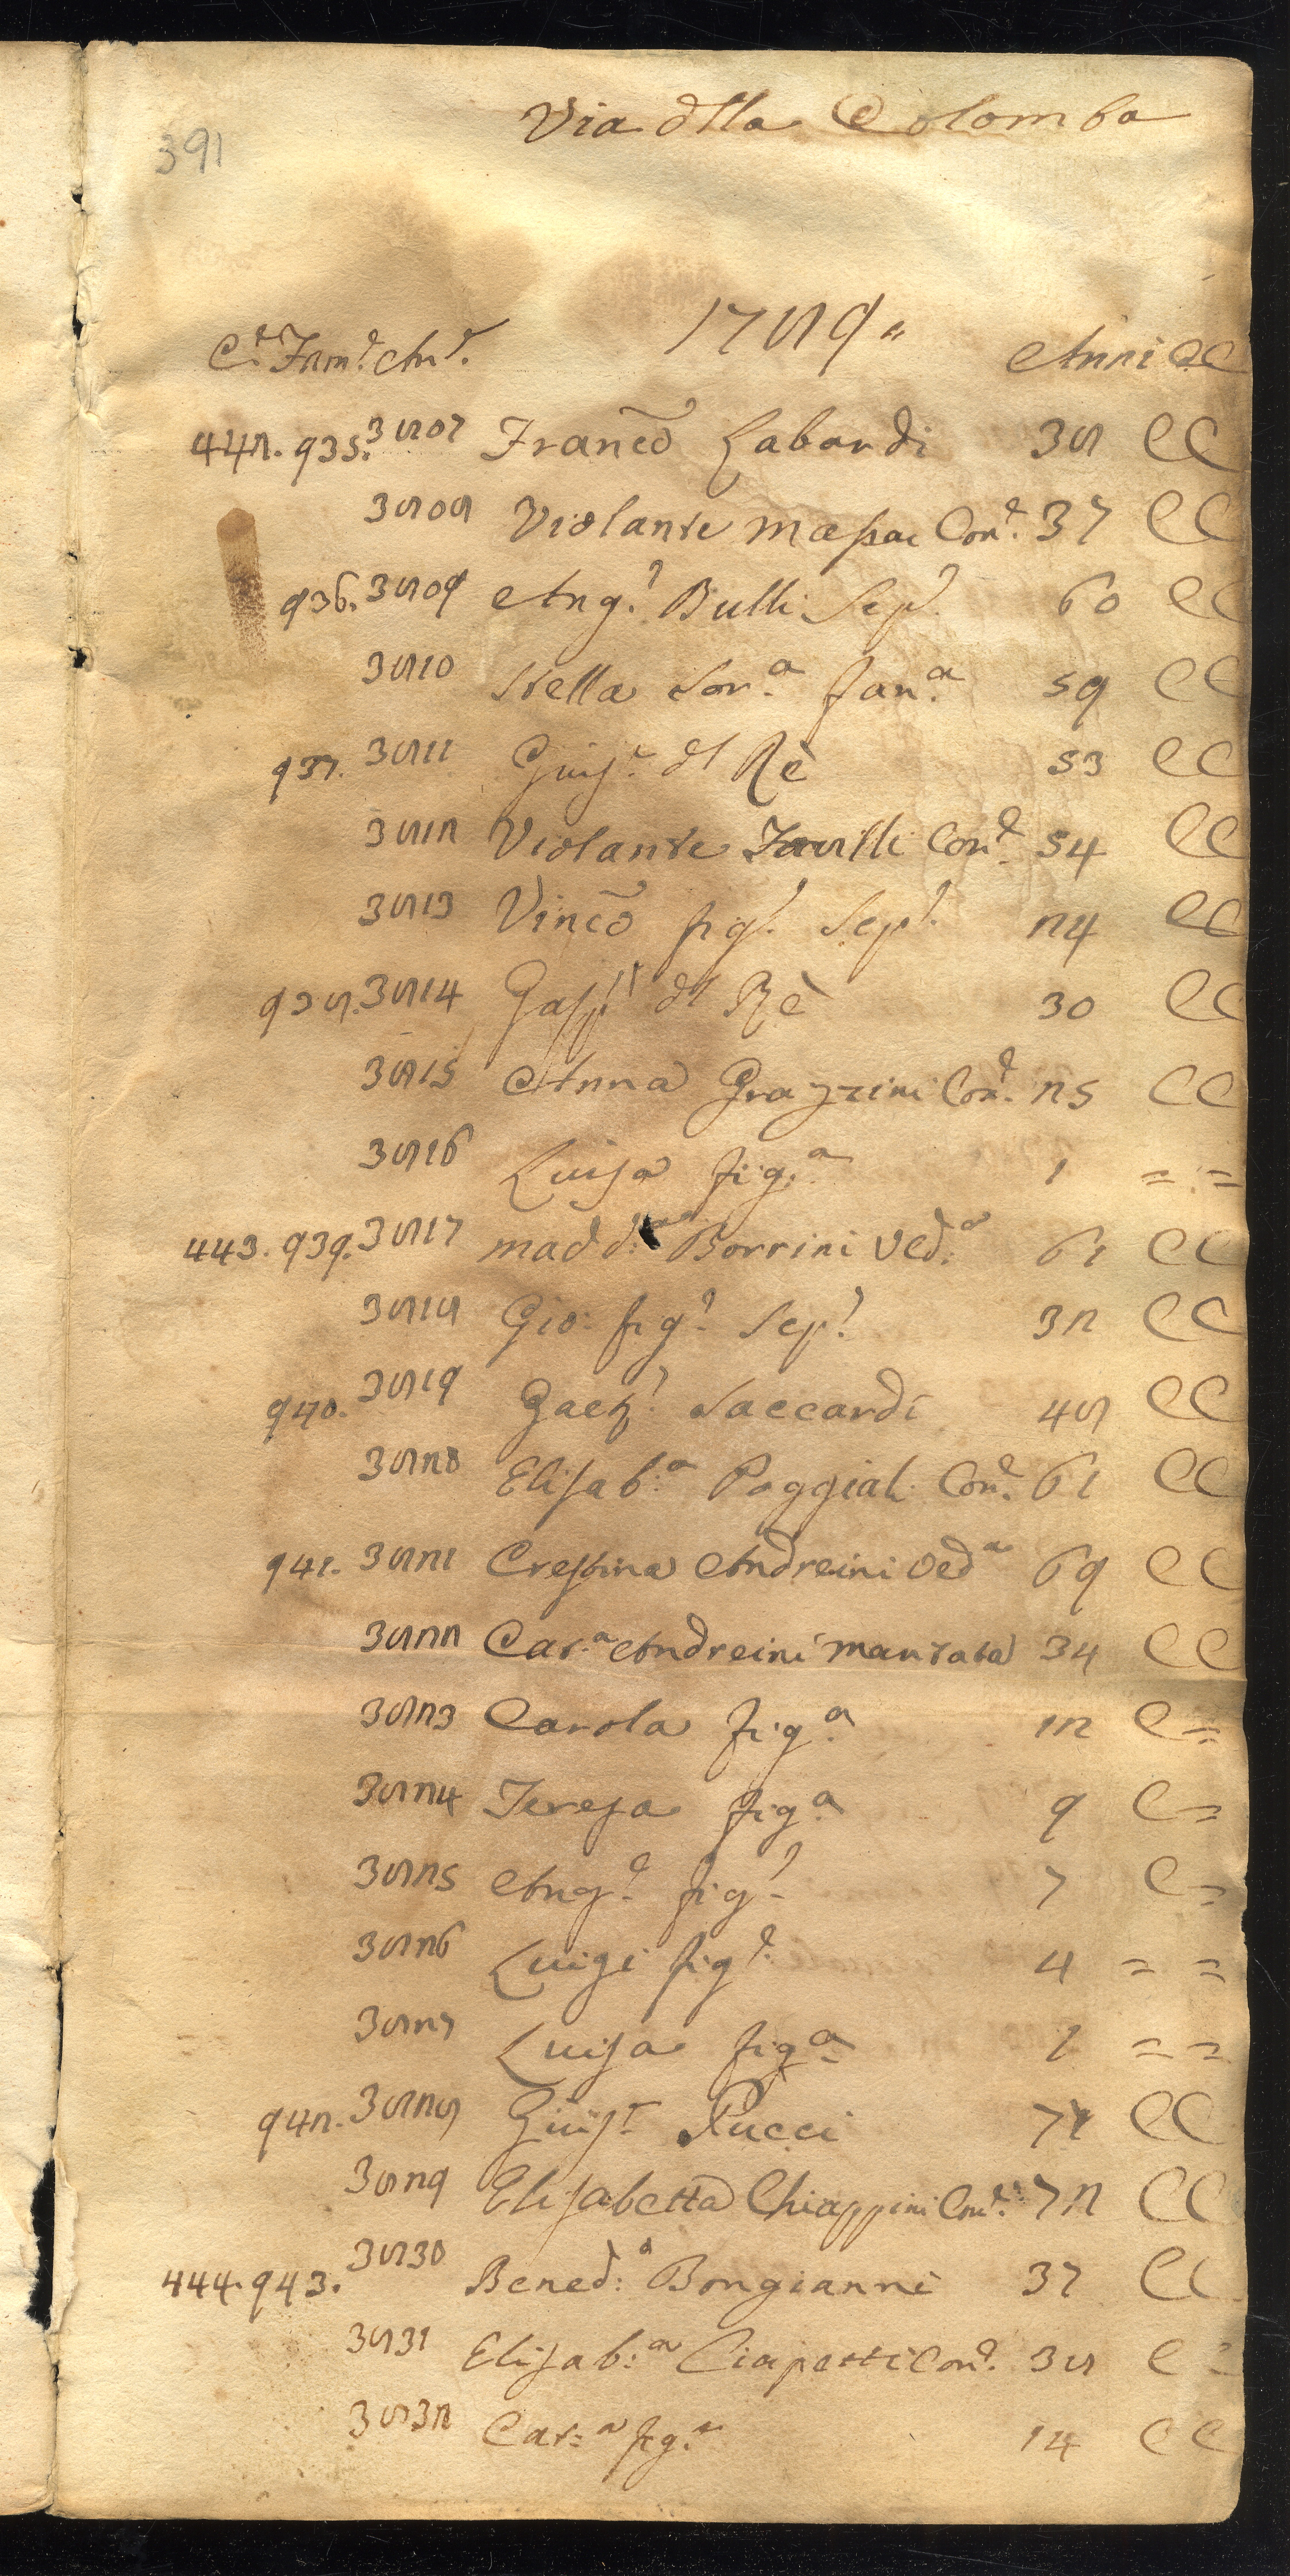 391
Via dlla Colomba
1789
C.e Fam.e An.e Anni CC
442. 935. 3807 Franco Labardi 38 CC
3808 Violante Massai Con.e 37 CC
936. 3809 Ang.o Bulli Sep.o 60 CC
3810 Stella Sor.a fan.a 59 CC
937. 3811 Giuse.e dl Rè 53 CC
3812 Violante Con.e 54 CC
3813 Vinco fig.o Sep.o 24 CC
938. 3814 Gasp.o dl Rè 30 CC
3815 Anna Grazzini Con.e 25 CC
3816 Luisa fig.a 1 = =
443. 939. 3817 Madd.a Borrini Ved.a 61 CC
3818 Gio: fig.o Sep.o 32 CC
940. 3819 Gaet.o Saccardi 48 CC
3820 Elisab.a Poggiali Con.e 61 CC
941. 3821 Crestina Andreini Ved.a 69 CC
3822 Cat.a Andreini Maritata 34 CC
3823 Carola fig.a 12 C=
3824 Teresa fig.a 9 C=
3825 Ang.o fig.o 7 C=
3826 Luigi fig.o 4 = =
3827 Luisa fig.a 1 = =
942. 3828 Giuse.e Pucci CC
3829 Elisabetta Chiappini Con.e 72 CC
444. 943. 3830 Bened:o Bongianni 37 CC
3831 Elisab:a Ciapetti Con.e 38 C
3832 Cat:a fig.a 14 CC